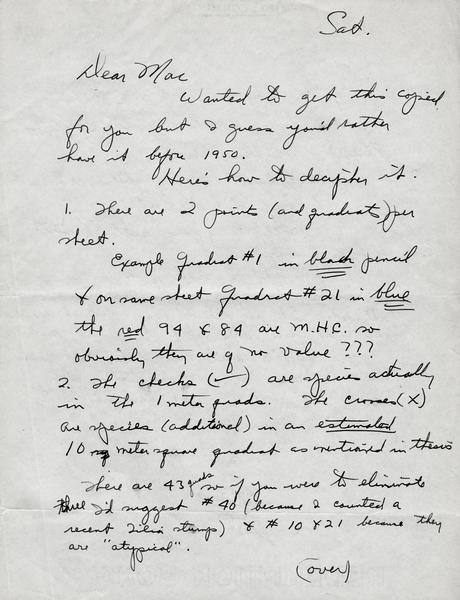 Sat.
Dear Mac
Wanted to get this copied
for you but I guess you'd rather
have it before 1950.
Here's how to decipher it.
1. There are 2 points (and quadrats) per
sheet.
Example Quadrat #1 in black pencil
& on same sheet Quadrat #21 in blue
the red 94 & 84 are M.H.C. so
obviously they are of no value ???
2. The checks (✓) are species actually
in the 1 meter quads. The crosses (X)
are species (additional) in an estimated
10 meter square quadrat as mentioned in thesis
There are 43 quads so if you were to eliminate
three I'd suggest #40 (because I counted a
recent Tilia stump) & #10 & 21 because they
are "atypical".
(over)